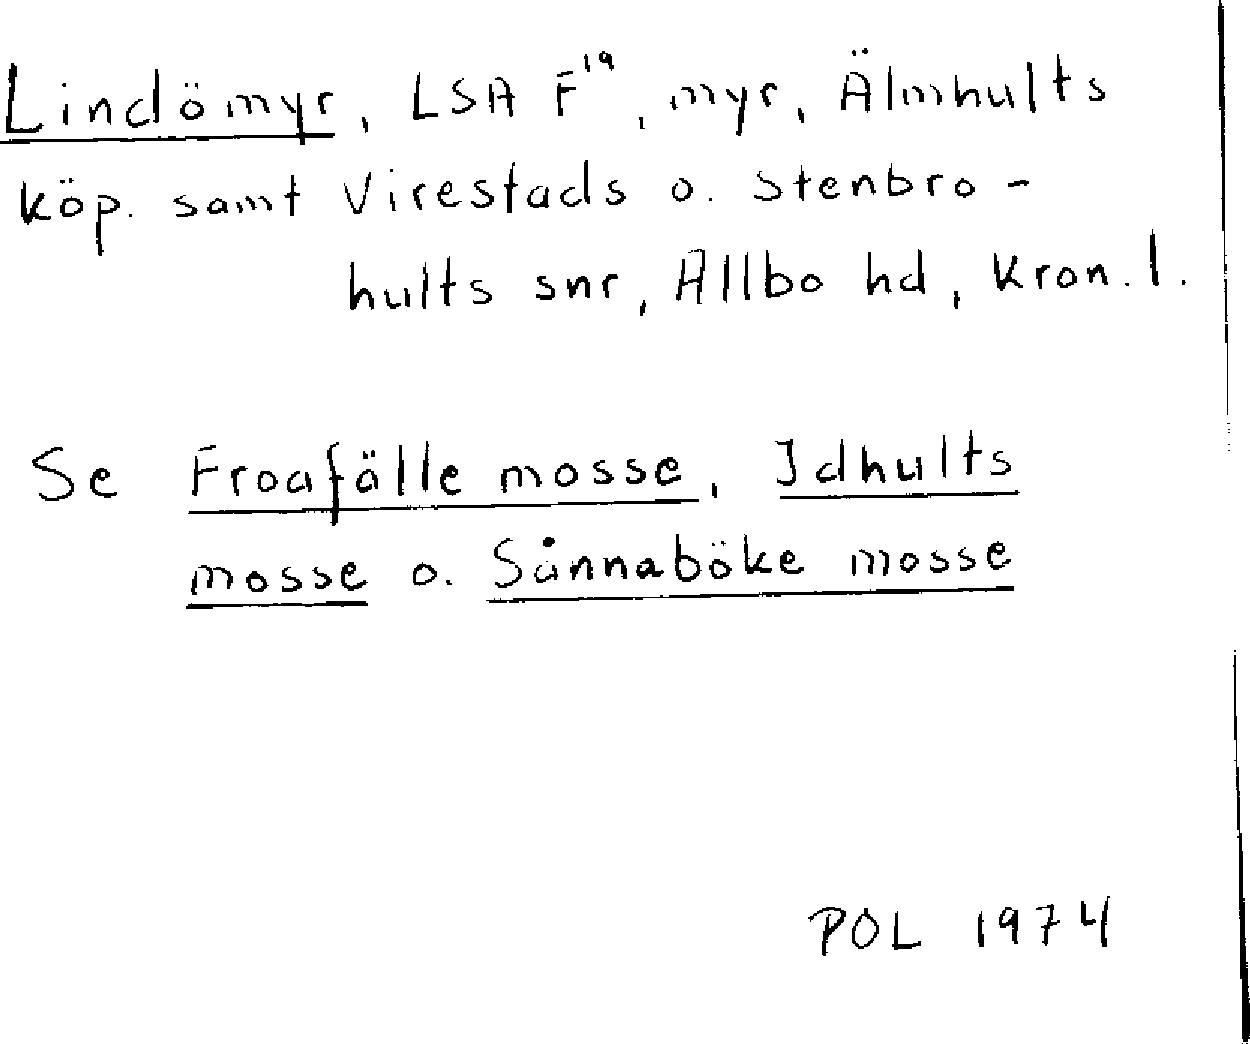 Lindömyr, LSA F¹⁹, myr, Älmhults
köp. samt Virestads o. Stenbro-
hults snr, Allbo hd, Kron. l.
Se Froafälle mosse, Idhults
mosse o. Sånnaböke mosse
POL 1974